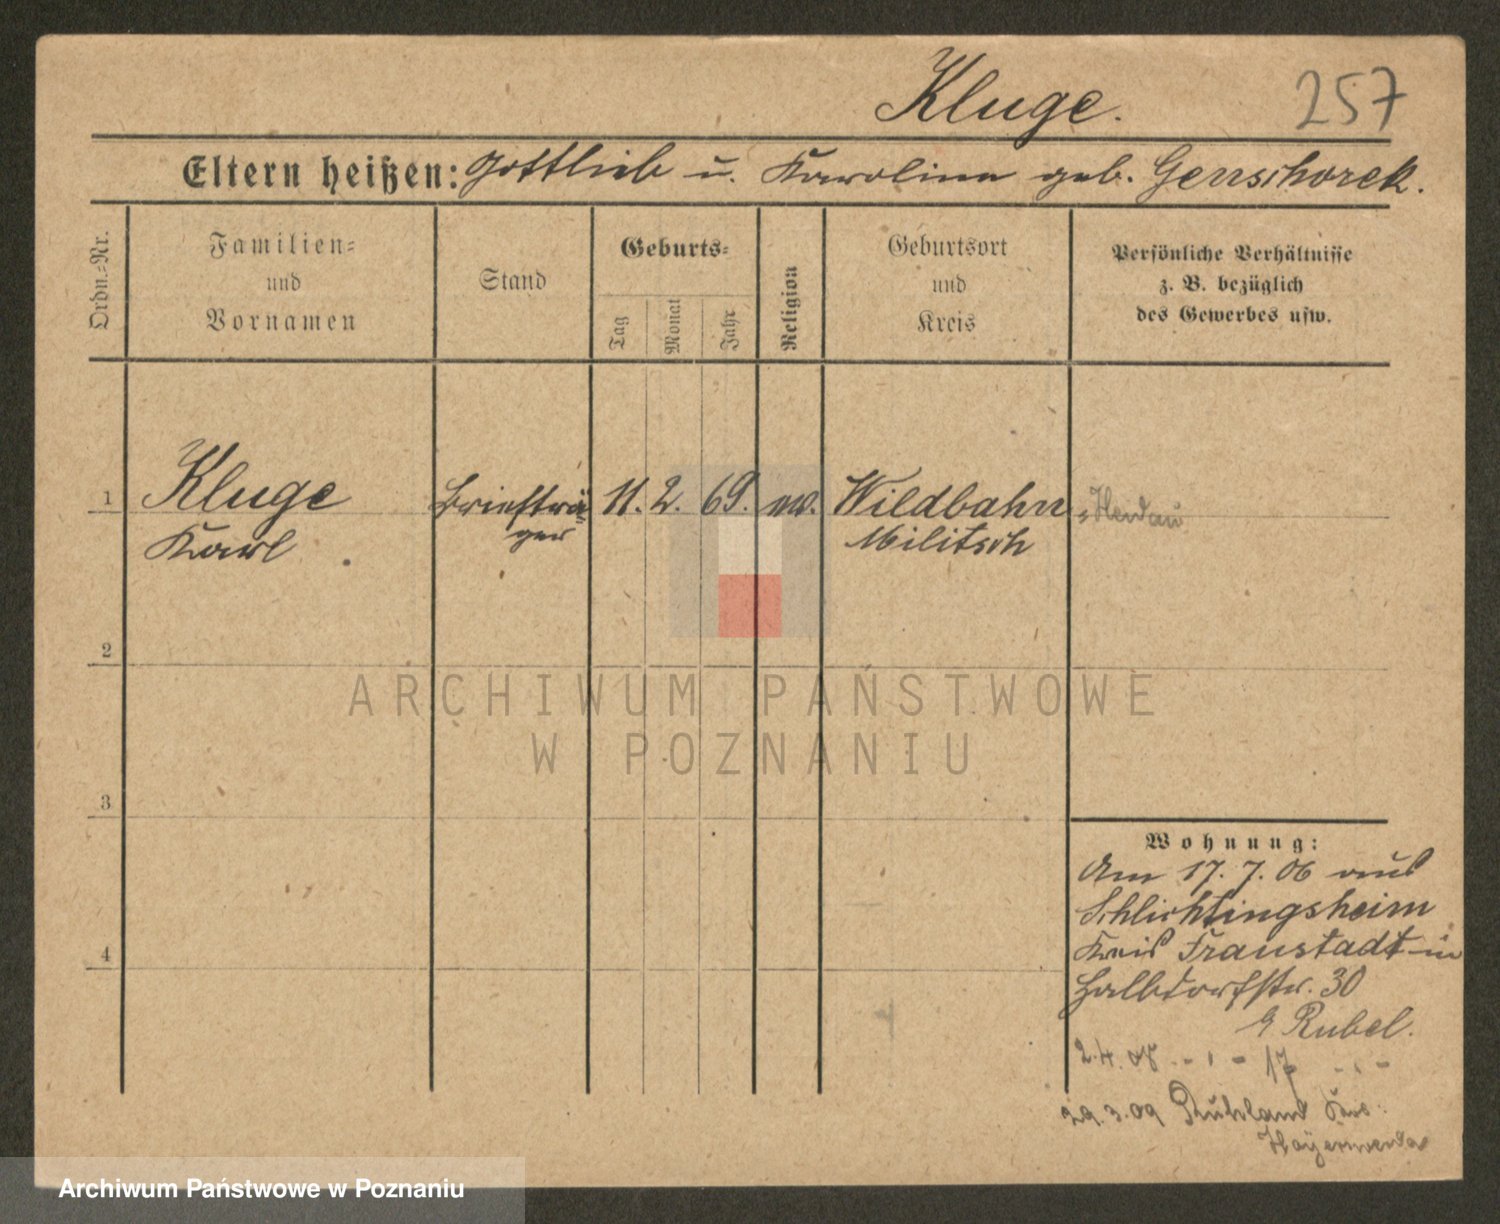 Kluge.
257
Eltern heißen: Gottlieb u. Karoline geb. Genschorek.
Ordn.=Nr.
Familien=
und
Vornamen
Stand
Geburts=
Tag
Monat
Jahr
Religion
Geburtsort
und
Kreis
Persönliche Verhältnisse
z. B. bezüglich
des Gewerbes usw.
1
Kluge
Karl
Briefträ=
ger
11. 2. 69. ev.
Wildbahn
Militsch
2
3
4
ARCHIWUM PAŃSTWOWE
W POZNANIU
Wohnung:
Am 17. 7. 06 aus
Schlichtingsheim
Kreis Fraustadt in
Halbdorfstr. 30
Rubel.
2.4.08 - " - 17 - " -
29.3.09 Ruhland Krs.
Hoyerswerda
Archiwum Państwowe w Poznaniu